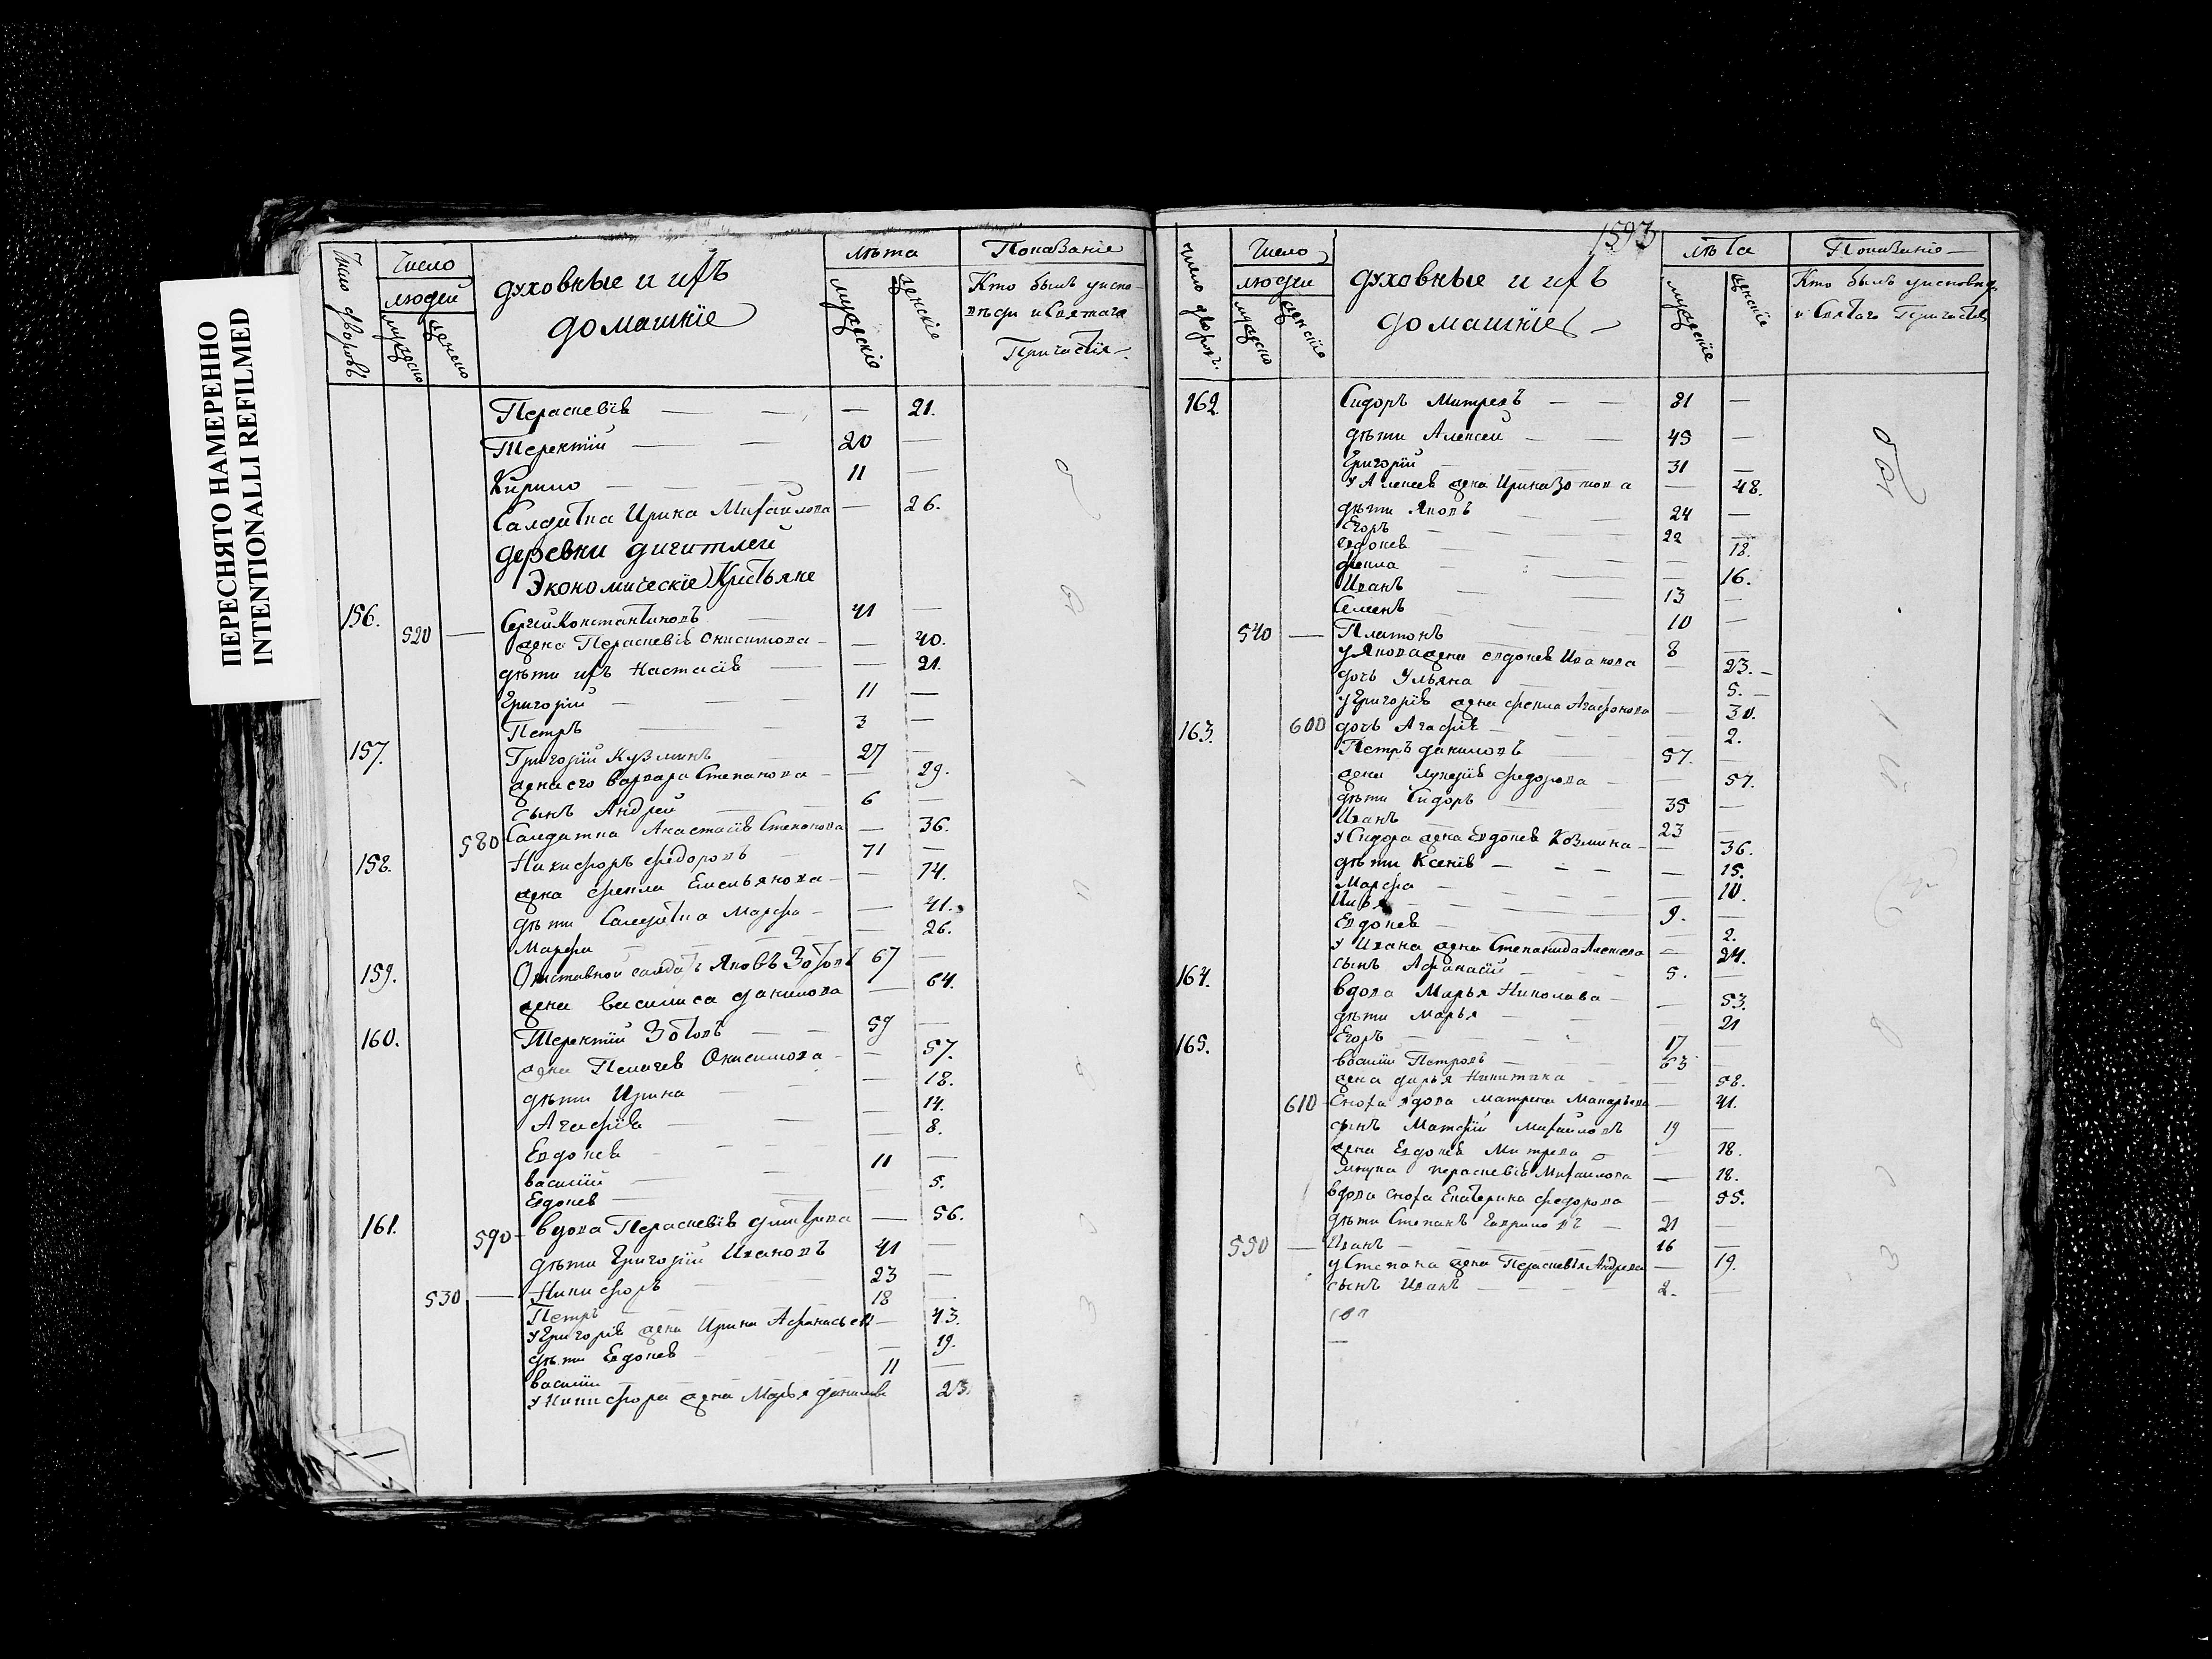 ПЕРЕСНЯТО НАМЕРЕННО
INTENTIONALLI REFILMED
Число дворовъ
Число
людей
мужеско
женско
духовные и ихъ
домашніе
лѣта
мужескіе
женскіе
Показаніе
Кто былъ уиспо-
вѣди и Святаго
Причастія
Парасковія — — — 21.
Терентій — — 20 —
Кирило — 11 —
Салдатка Ирина Михаилова — 26.
деревни
Экономическіе Крестьяне
156. 520 — Сергий Константиновъ 41 —
жена Парасковія Онисимова — — 40.
дѣти ихъ Настасія — — 21.
Григорій — — 11 —
Петръ — — 3 —
157. Григорій Кузминъ 27 —
жена его Варвара Степанова — — 29.
сынъ Андрей — — 6 —
580 Салдатка Анастасія Степанова — 36.
158. Никифоръ Федоровъ — 71 —
жена Фекла Емельянова — — 74.
дѣти Салдатка Марфа — — 41.
Марфа — — — 26.
159. Отставной салдатъ Яковъ Зотовъ 67 —
жена Василиса Данилова — 64.
160. Терентій Зотовъ — — 59 —
жена Пелагея Онисимова — — 57.
дѣти Ирина — — 18.
Агафія — — — 14.
Евдокея — — 8.
василій — 11 —
Евдокея — — 5.
161. 590 вдова Парасковія Дмитрева — 56.
дѣти Григорій Ивановъ 41 —
530 — Никифоръ — 23 —
Петръ — — 18 —
у Григорія жена Ирина Афанасьева — 43.
дѣти Евдокея — — — 19.
василій — — 11 —
у Никифора жена Марья Данилова 23.
1593
Число дворовъ.
Число
людей
мужеско
женскіе
духовные и ихъ
домашніе —
лѣта
мужескіе
женскіе
Показаніе —
Кто былъ уисповѣд.
и Святаго Причастія
162. Сидоръ Митревъ — — 81 —
дѣти Алексей — — 45 —
Григорій — — 31 —
У Алексея жена Ирина Зотова — 48.
дѣти Яковъ — — 24 —
Егоръ — — 22 —
Евдокея — — — 18.
Фекла — — — 16.
Иванъ — — 13 —
Семенъ — — 10 —
540 — Платонъ — — 8 —
у Якова жена Евдокея Иванова — 23. —
дочь Ульяна — — 5. —
у Григорія жена Фекла Агафонова — 30.
600 дочь Агафія — — — 2.
163. Петръ Даниловъ — 57. —
жена Лукерія Федорова — — 57.
дѣти Сидоръ — — 35 —
Иванъ — — 23 —
у Сидора жена Евдокея Козмина — — 36.
дѣти Ксенія — — — — 15.
Марфа — — — — 10.
— — — 9. —
Евдокея — — — 2.
у Ивана жена Степанида Алексева — 24.
сынъ Афанасій — — 5. —
164. вдова Марья Николаева — — 53.
дѣти Марья — — — 21
Егоръ — — — 17 —
165. василій Петровъ — 63 —
жена Дарья Никитина — — 58.
610 Сноха вдова Матрена Макарьева — 41.
сынъ Матфій Михаиловъ 19 —
жена Евдокея Митрева — — 18.
внука Парасковія Михаилова — 18.
вдова сноха Екатерина Федорова — 55.
дѣти Степанъ Гавриловъ — 21 —
550 — Иванъ — — 16 —
у Степана жена Парасковія Андрева — 19.
сынъ Иванъ — — — 2. —